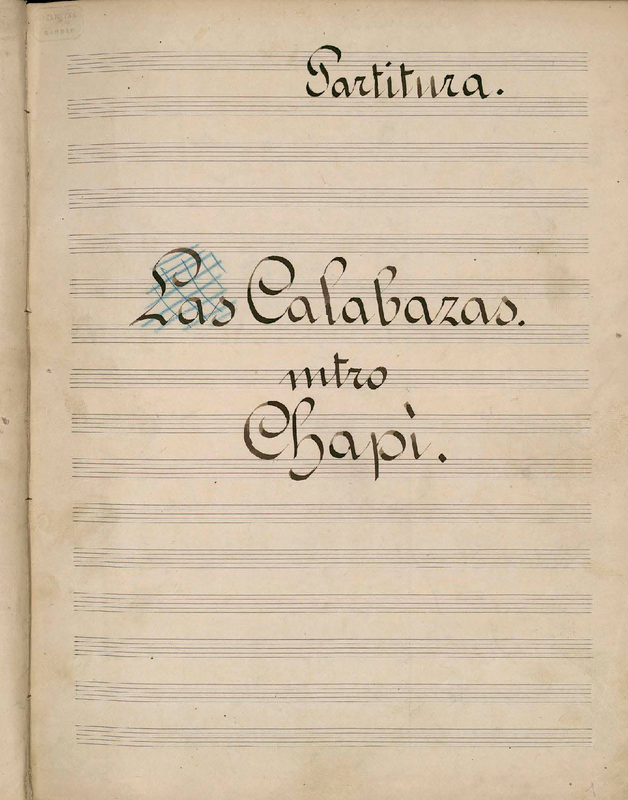 Partitura.
Las Calabazas.
mtro
Chapì.